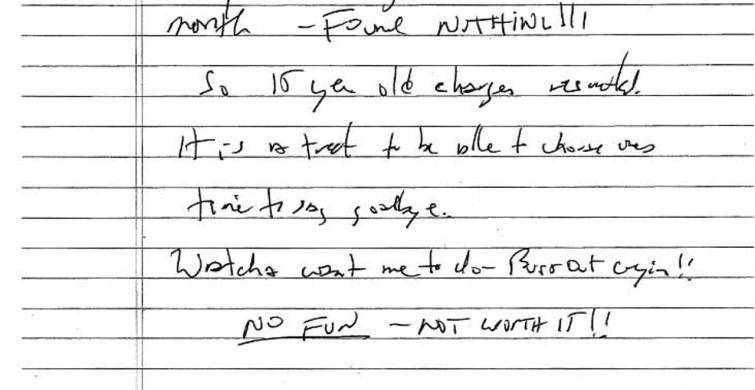 month - FOUND NOTHING!!!
So 15 year old charges resulted.
It is a treat to be able to choose ones
time to say goodbye.
Watcha want me to do - Burst out cryin!!
NO FUN - NOT WORTH IT!!